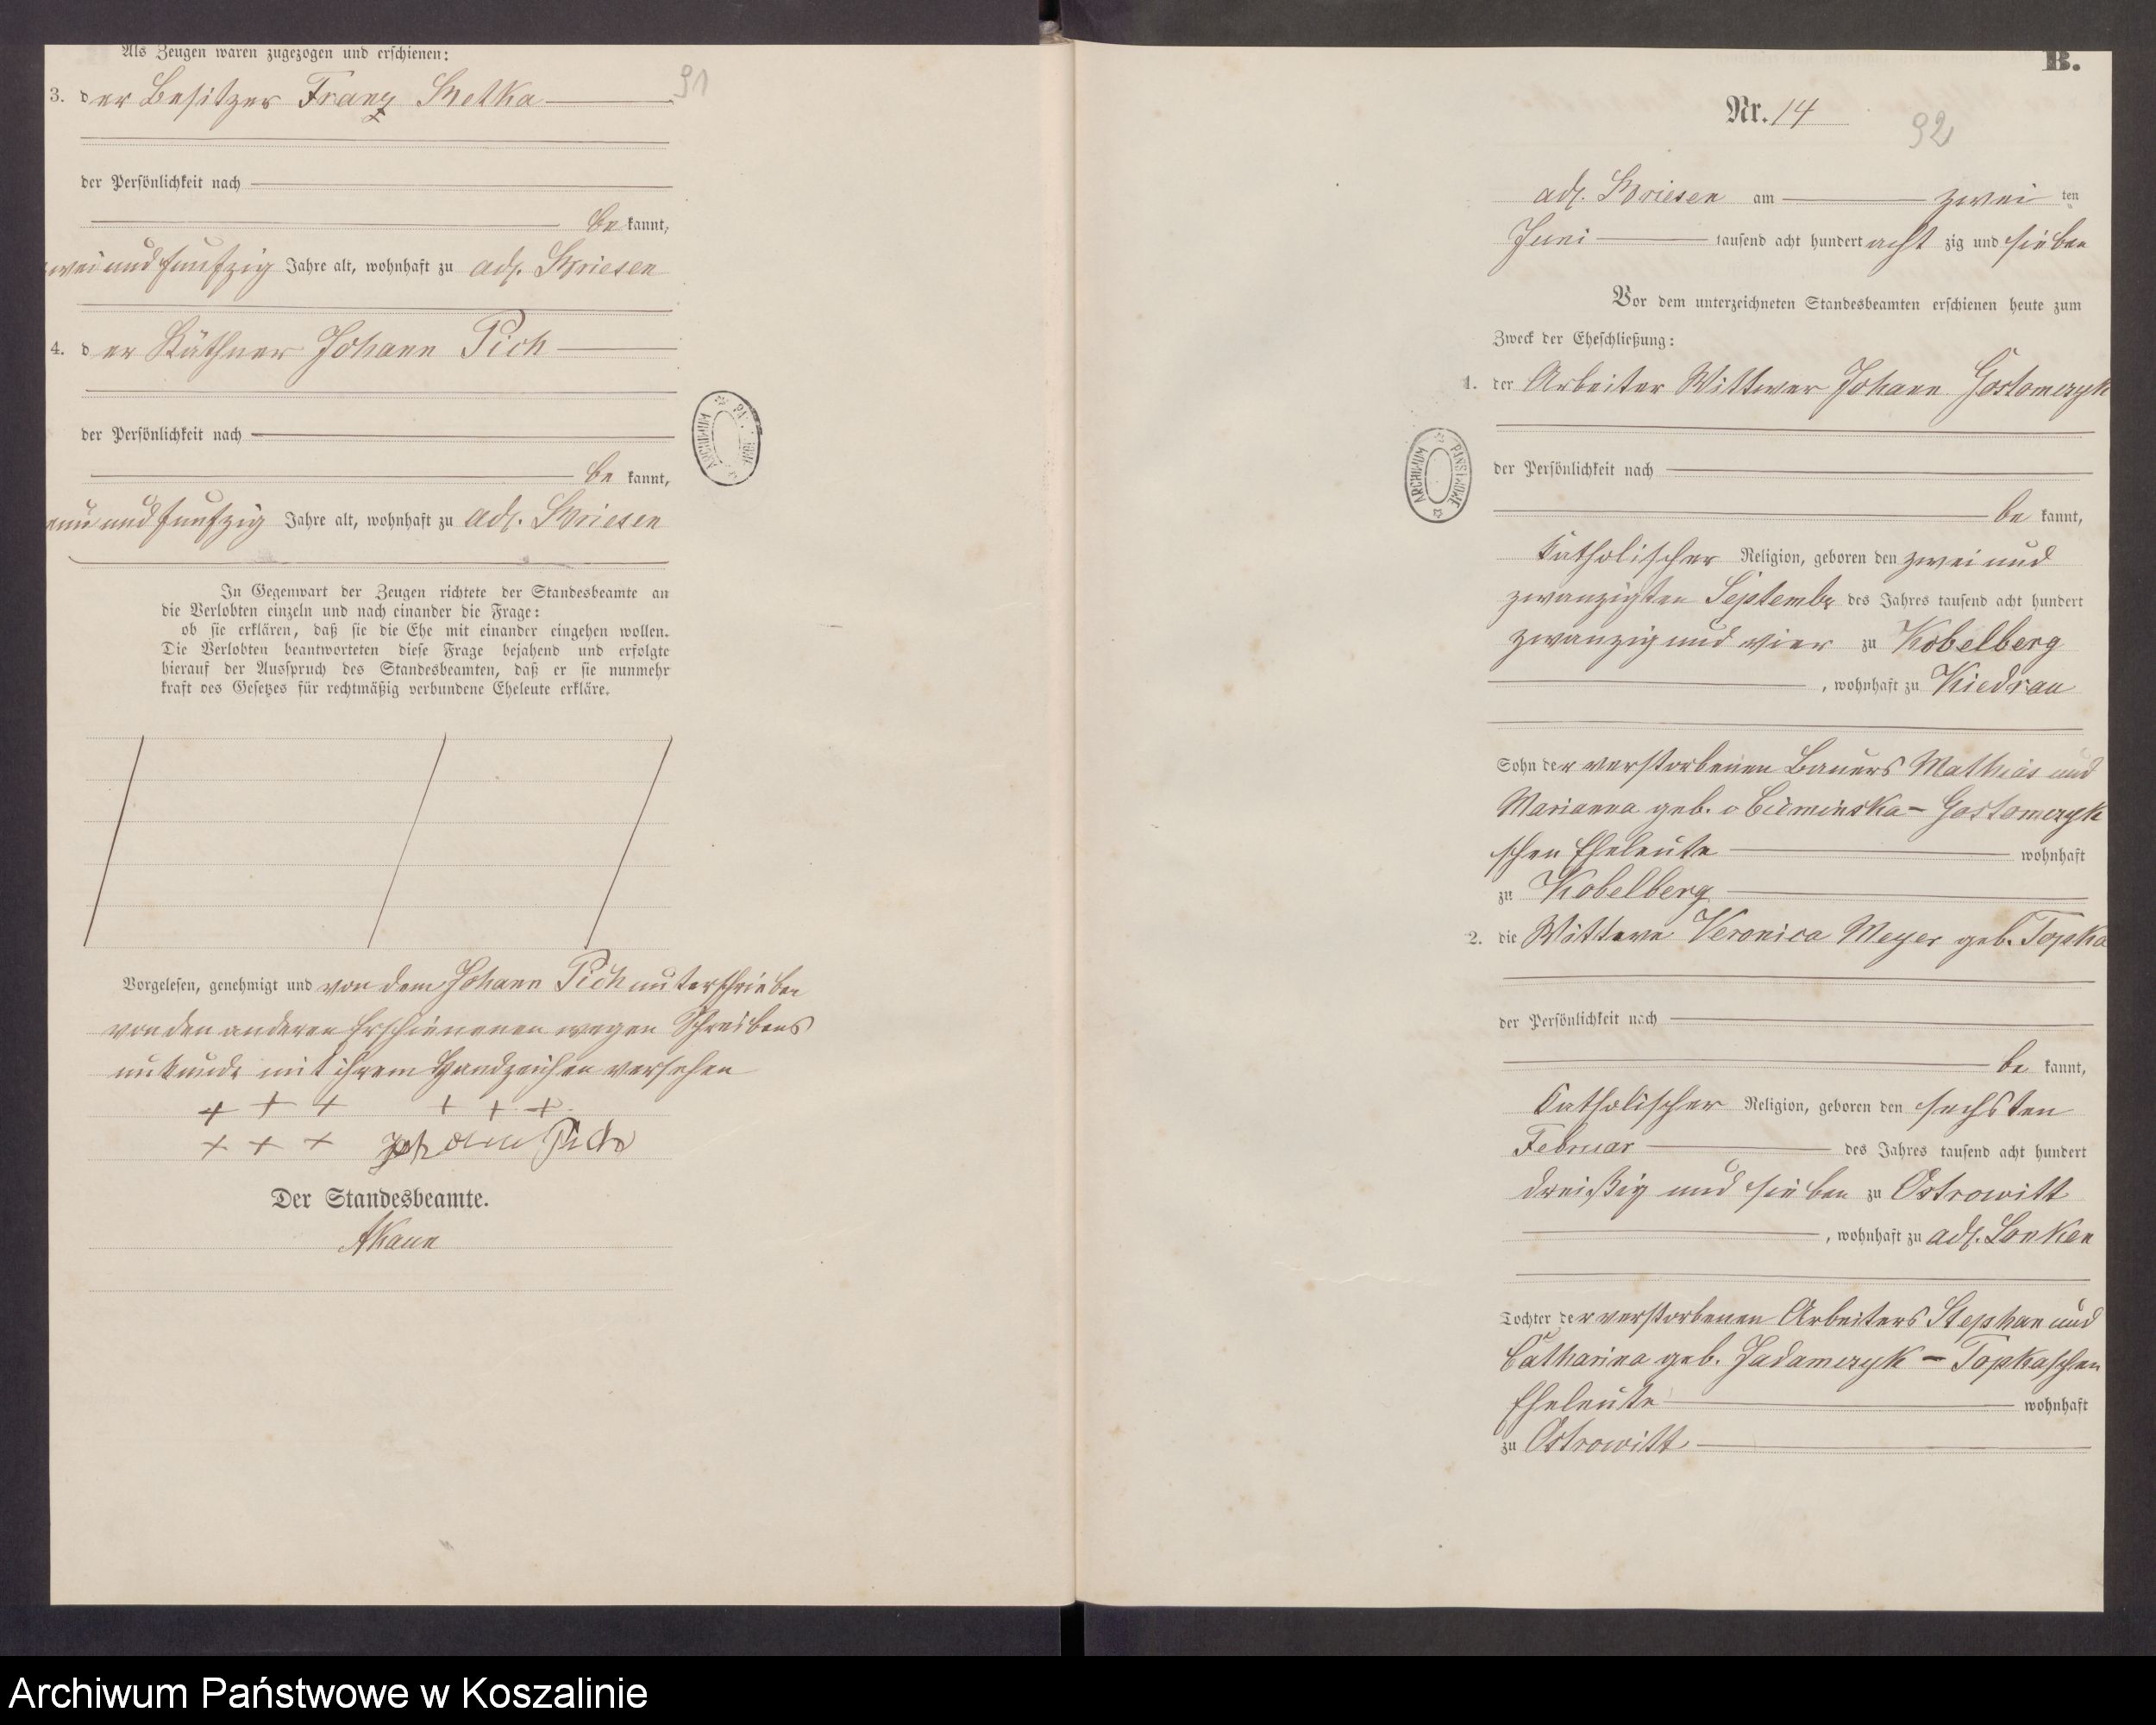 Als Zeugen waren zugezogen und erschienen:
91
3. der Besitzer Franz Metka
der Persönlichkeit nach
be kannt,
zwei und funfzig Jahre alt, wohnhaft zu adl. Briesen
4. der Käthner Johann Pich
der Persönlichkeit nach
be kannt,
neun und funfzig Jahre alt, wohnhaft zu adl. Briesen
In Gegenwart der Zeugen richtete der Standesbeamte an
die Verlobten einzeln und nach einander die Frage:
ob sie erklären, daß sie die Ehe mit einander eingehen wollen.
Die Verlobten beantworteten diese Frage bejahend und erfolgte
hierauf der Ausspruch des Standesbeamten, daß er sie nunmehr
kraft des Gesetzes für rechtmäßig verbundene Eheleute erkläre.
Vorgelesen, genehmigt und von dem Johann Pich unterschrieben
von den anderen Erschienenen wegen Schreibens
unkunde mit ihrem Handzeichen versehen
+ + + + + +
+ + + Johann Pich
Der Standesbeamte.
ARCHIWUM
B.
Nr. 14
92
adl. Briesen am zwei ten
Juni tausend acht hundert acht zig und sieben
Vor dem unterzeichneten Standesbeamten erschienen heute zum
Zweck der Eheschließung:
1. der Arbeiter Wittwer Johann Gostomczyk
der Persönlichkeit nach
be kannt,
katholischer Religion, geboren den zwei und
zwanzigsten Septembr des Jahres tausend acht hundert
zwanzig und vier zu Kobelberg
, wohnhaft zu Kiedrau
Sohn der verstorbenen Bauers Mathias und
Marianna geb. v Cieminska - Gostomczyk
schen Eheleute wohnhaft
zu Kobelberg
2. die Wittwe Veronica Meyer geb. Topka
der Persönlichkeit nach
be kannt,
katholischer Religion, geboren den sechsten
Februar des Jahres tausend acht hundert
dreißig und sieben zu Ostrowitt
, wohnhaft zu adl. Lonken
Tochter der verstorbenen Arbeiters Stephan und
Catharina geb. Jadamczyk - Topkaschen
Eheleute wohnhaft
zu Ostrowitt
ARCHIWUM PAŃSTWOWE
Archiwum Państwowe w Koszalinie